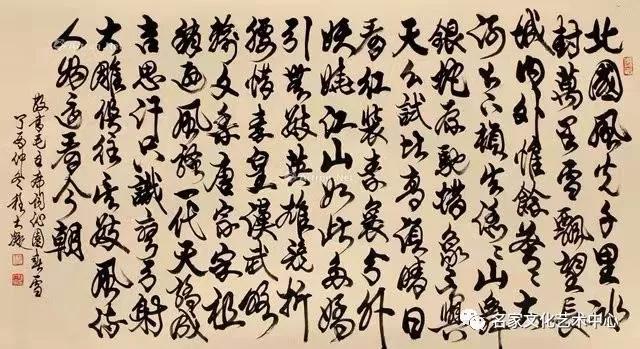 北國風光千里冰
封萬里雪飄望長
城內外惟餘莽々大
河上下頓失滔々山舞
銀蛇原馳蠟象欲與
天公試比高須晴日
看紅裝素裹分外
妖嬈江山如此多嬌
引無數英雄競折
腰惜秦皇漢武略
輸文采唐宗宋祖
稍遜風騷一代天驕成
吉思汗只識彎弓射
大雕俱往矣數風流
人物還看今朝
敬書毛主席詞沁園春雪
丁酉仲冬
名家文化艺术中心